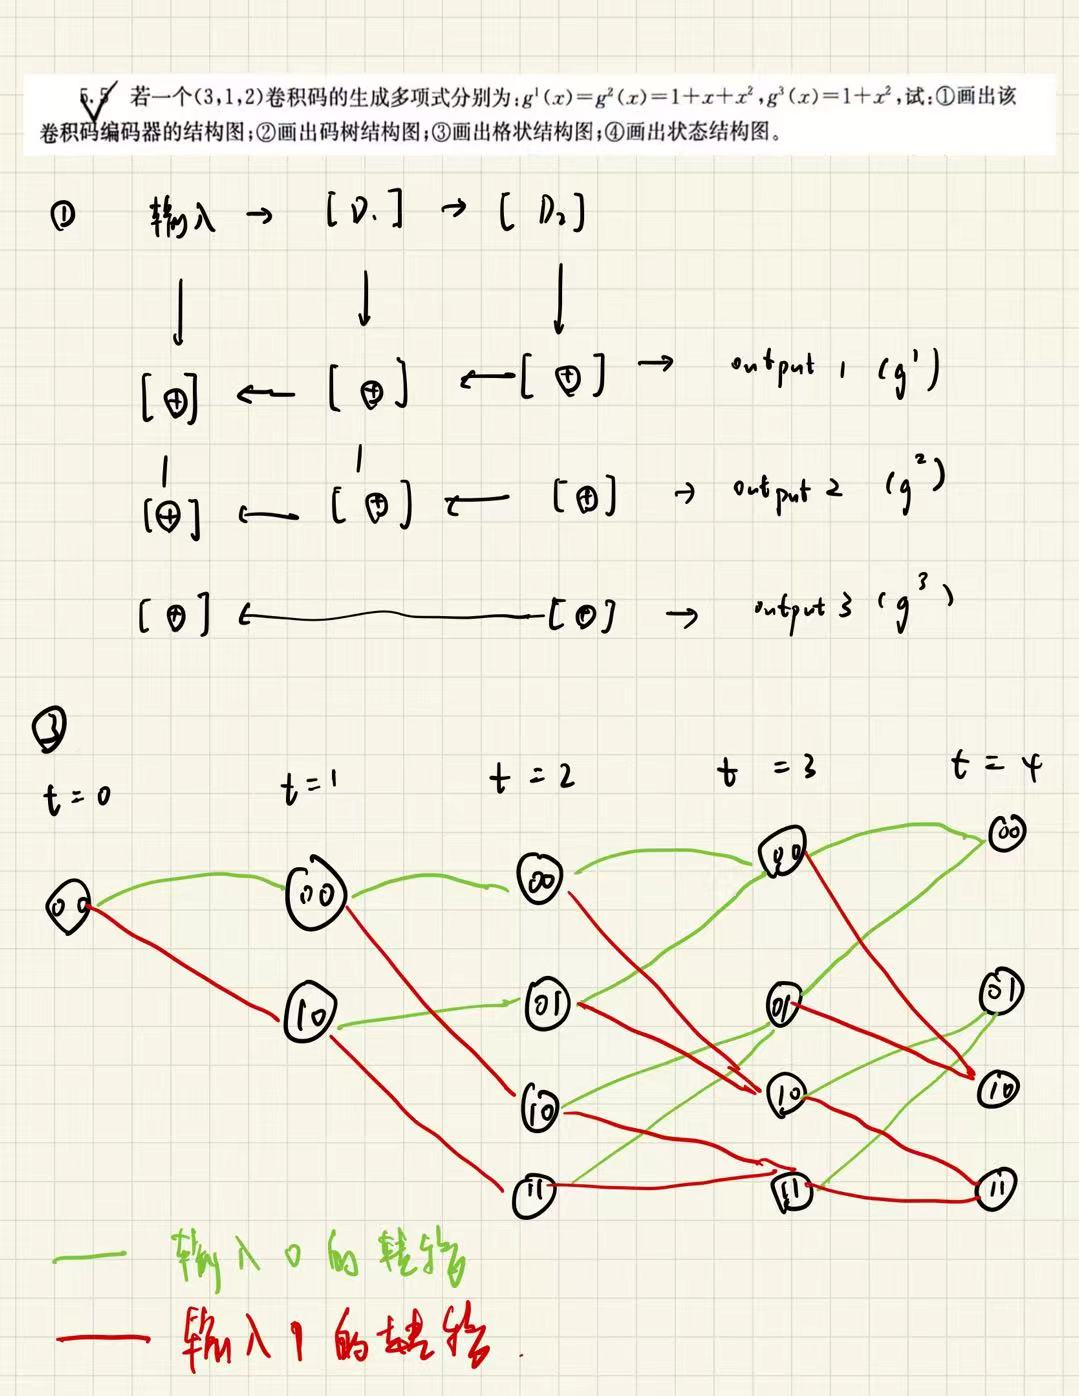 5.5 若一个(3,1,2)卷积码的生成多项式分别为:g¹(x)=g²(x)=1+x+x²,g³(x)=1+x²,试:①画出该
卷积码编码器的结构图;②画出码树结构图;③画出格状结构图;④画出状态结构图。
① 输入 → [D₁] → [D₂]
[⊕] ← [⊕] ← [⊕] → output 1 (g¹)
[⊕] ← [⊕] ← [⊕] → output 2 (g²)
[⊕] ← [⊕] → output 3 (g³)
③
t=0 t=1 t=2 t=3 t=4
00 00 00 00 00
10 01 01 01
10 10 10
11 11 11
输入0的转移
输入1的转移.